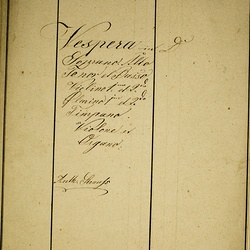 Vespera in D
Soprano Alto
Tenor et Basso
Violino 1mo et 2do
Clarino 1mo et 2do
Timpano
Violone et
Organo